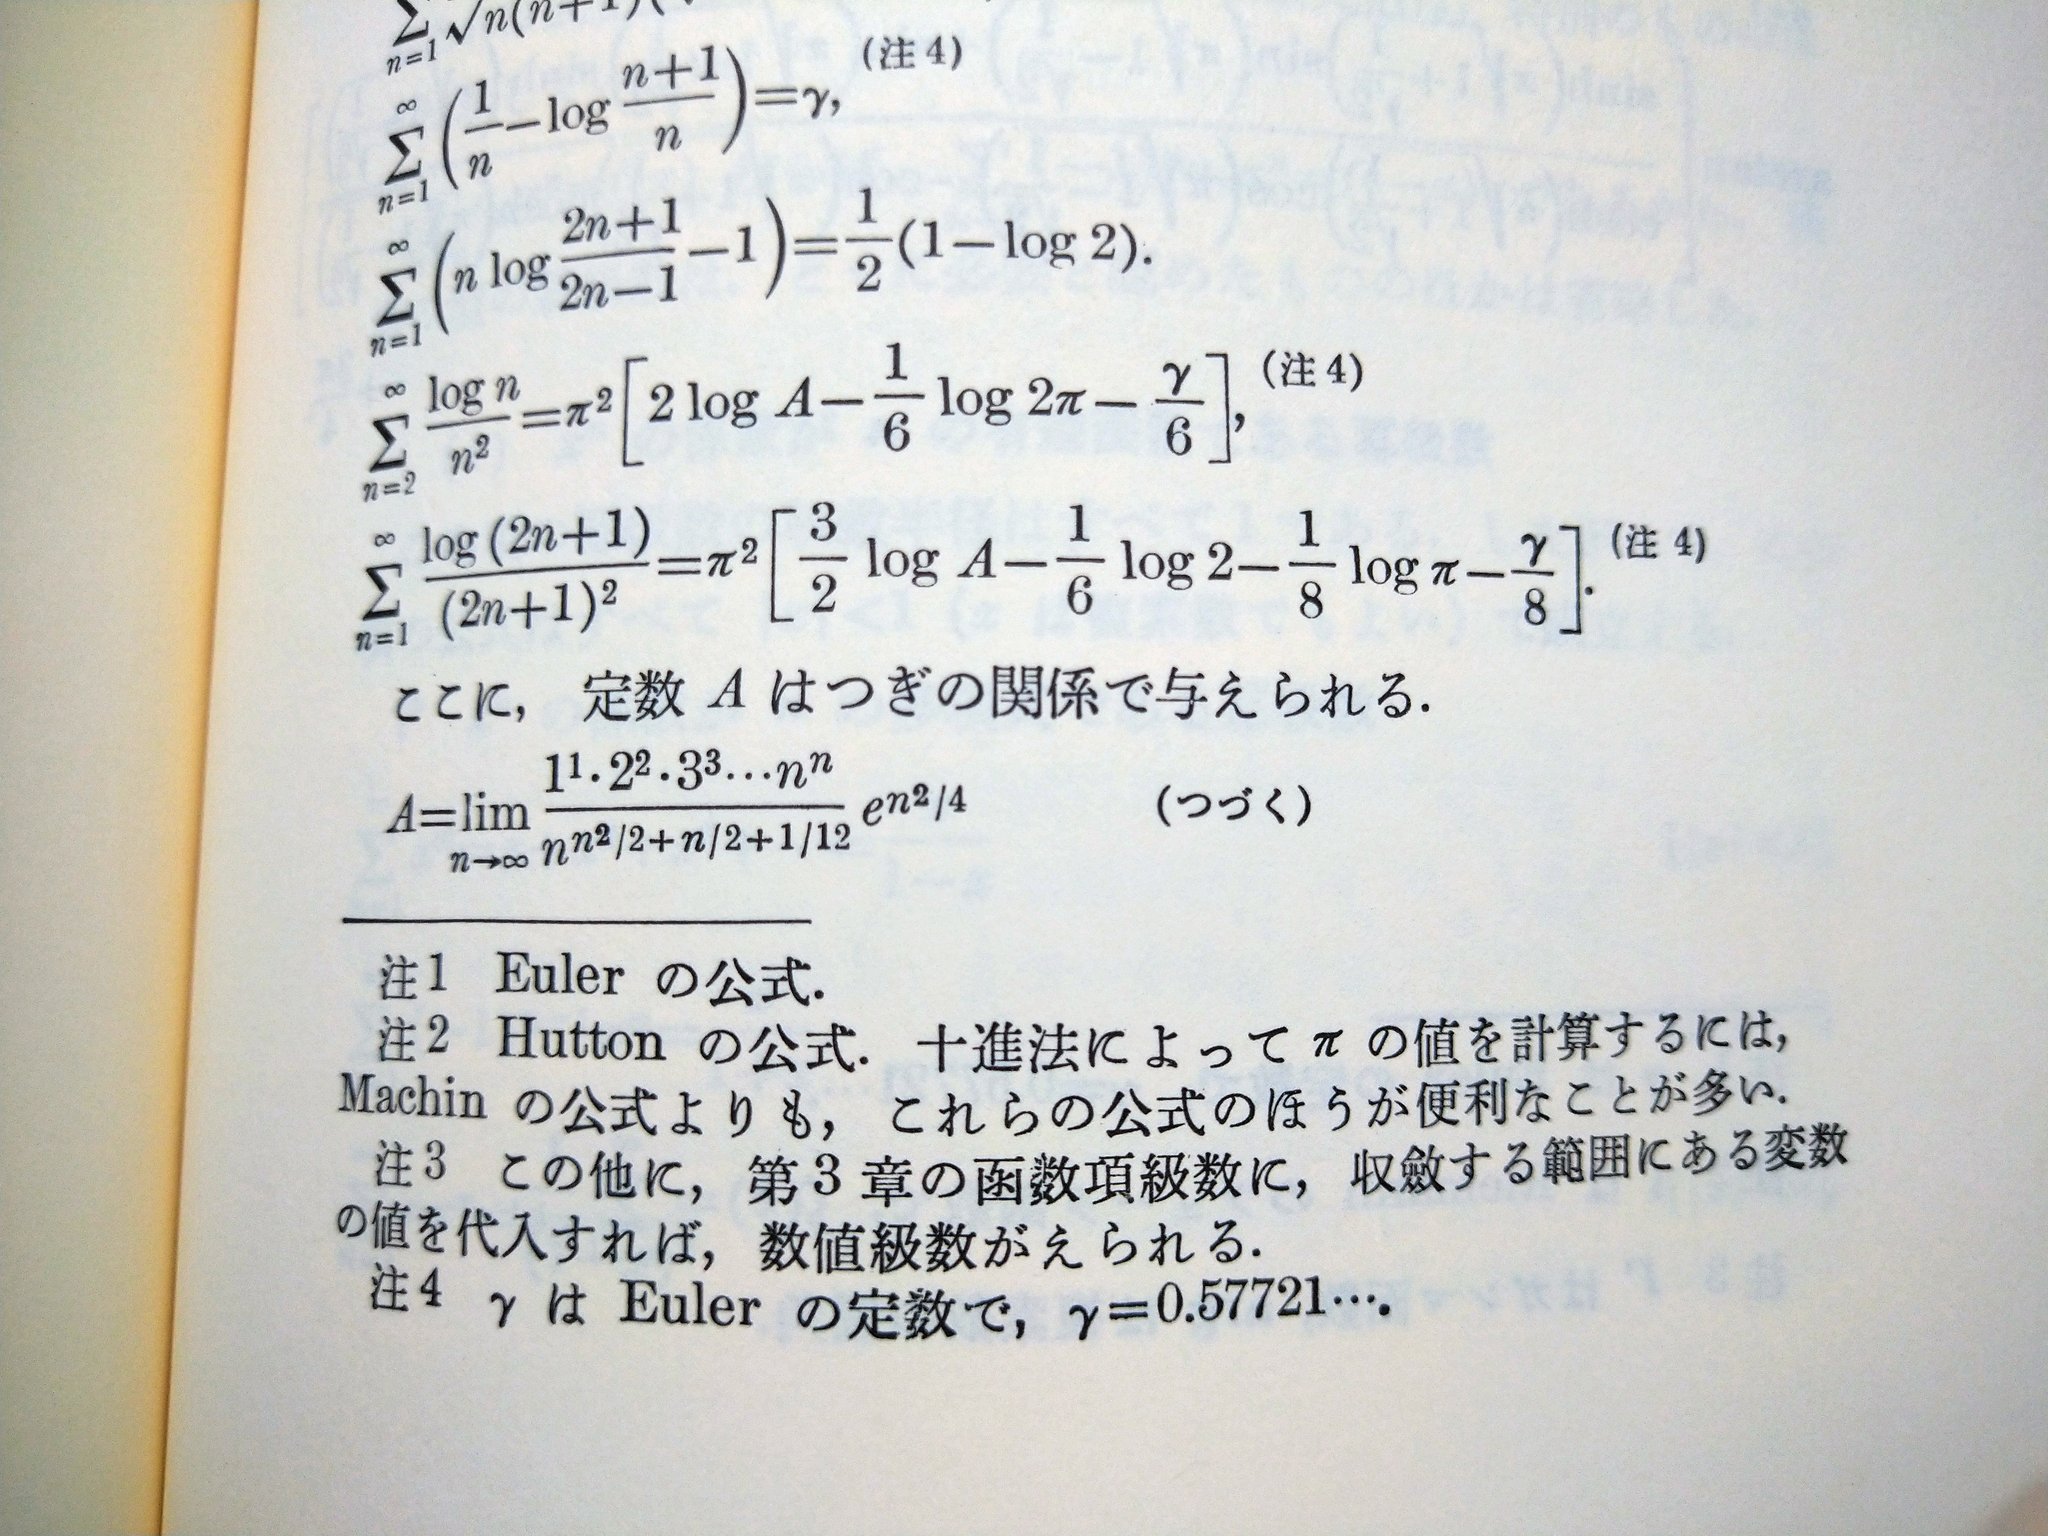 ∑_{n=1} √n(n+1)(
∑_{n=1}^{∞} (1/n − log (n+1)/n) = γ, (注4)
∑_{n=1}^{∞} (n log (2n+1)/(2n−1) − 1) = 1/2 (1 − log 2).
∑_{n=2}^{∞} log n / n² = π² [2 log A − 1/6 log 2π − γ/6], (注4)
∑_{n=1}^{∞} log (2n+1) / (2n+1)² = π² [3/2 log A − 1/6 log 2 − 1/8 log π − γ/8]. (注4)
ここに, 定数 A はつぎの関係で与えられる.
A = lim_{n→∞} (1¹·2²·3³···nⁿ) / n^{n²/2+n/2+1/12} e^{n²/4} (つづく)
注1 Euler の公式.
注2 Hutton の公式. 十進法によって π の値を計算するには,
Machin の公式よりも, これらの公式のほうが便利なことが多い.
注3 この他に, 第3章の函数項級数に, 収斂する範囲にある変数
の値を代入すれば, 数値級数がえられる.
注4 γ は Euler の定数で, γ=0.57721···.